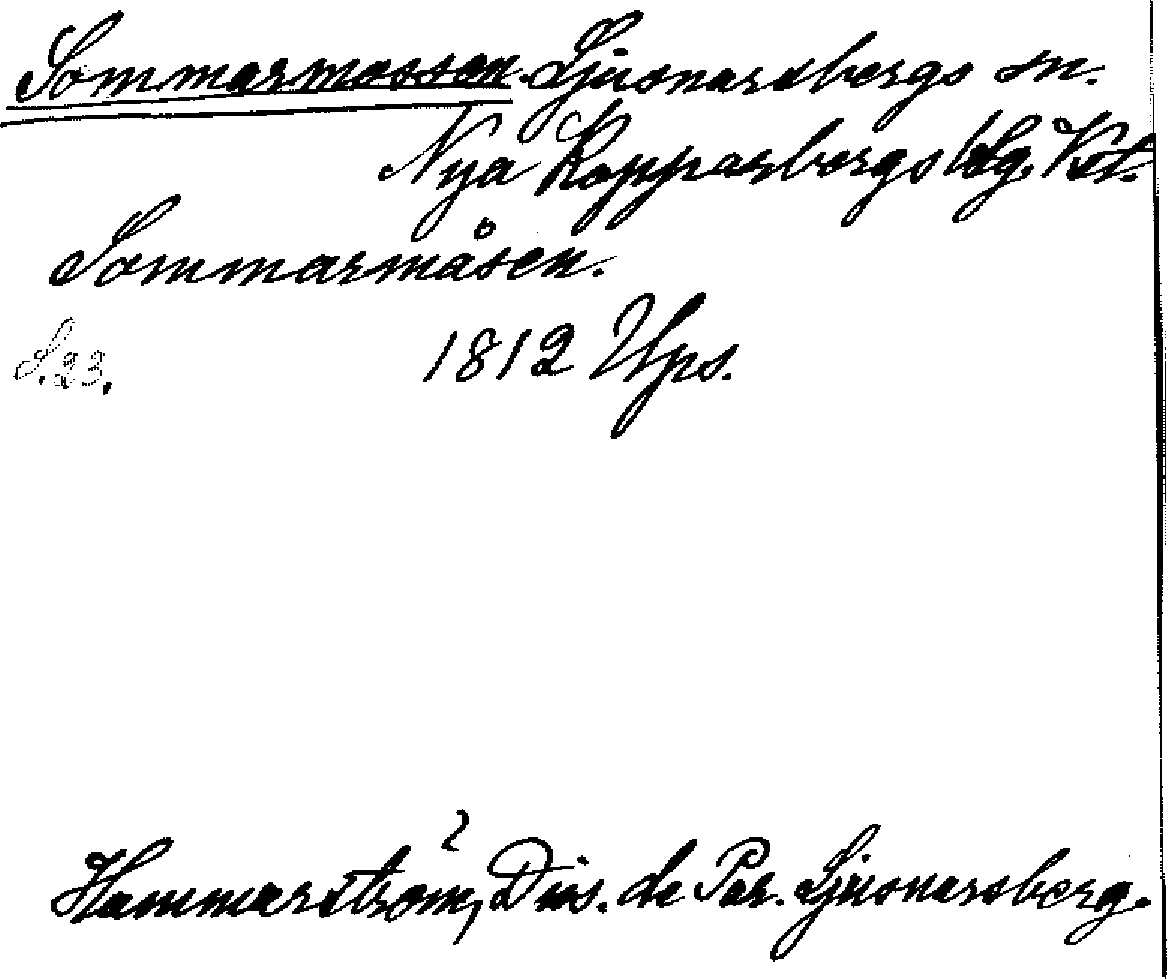 Sommarmossen. Ljusnarsbergs sn.
Nya Kopparbergs bslg. Vstm.
Sommarmåsen.
S. 23. 1812 Ups.
Hammarström, Diss. de Par. Ljusnarsberg.